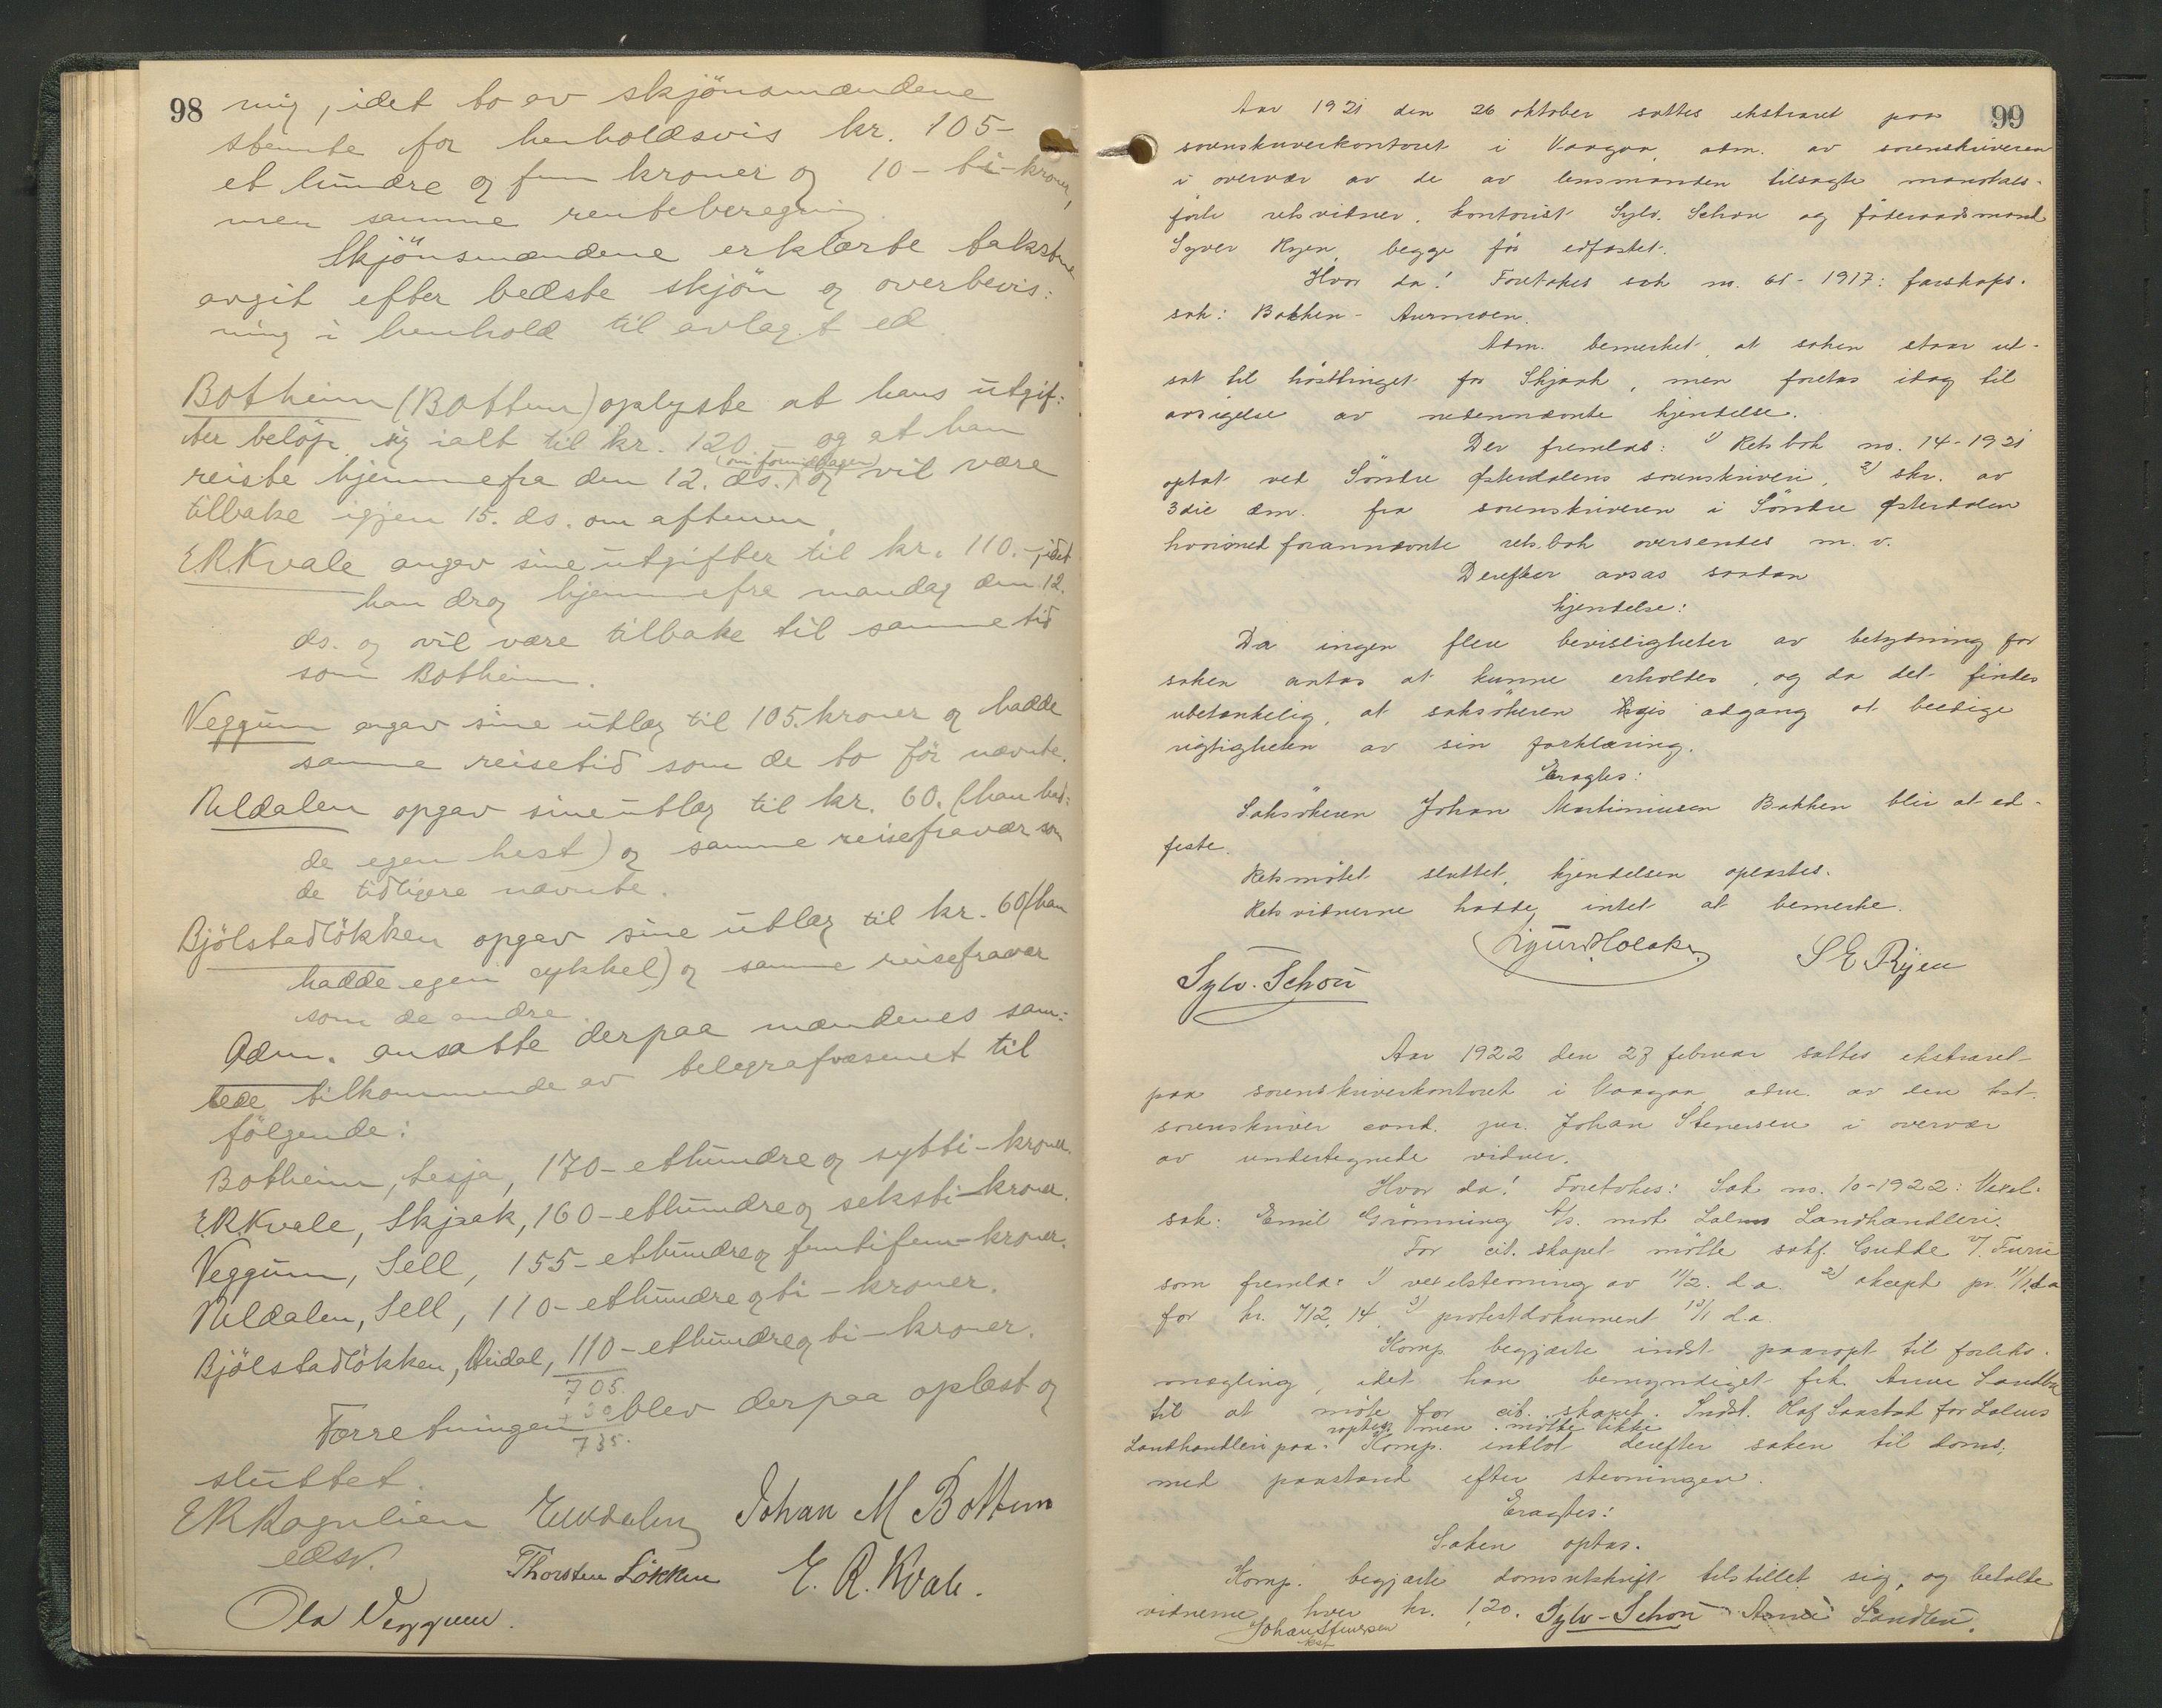 98
ning, idet to av skjönsmændene
stemte for henholdsvis kr. 105-
et hundre og fem kroner og 10 - ti - kroner,
men samme renteberegning.
Skjönsmændene erklærte taksten
avgit efter bedste skjön og overbevis:
ning i henhold til avlagt ed.
Botheim (Bottum) oplyste at hans utgif:
ter belöp sig ialt til kr. 120.- og at han
(om formiddagen)
reiste hjemmefra den 12. ds. og vil være
tilbake igjen 15. ds. om aftenen.
E.R. Kvale angav sine utgifter til kr. 110.-, idet
han drog hjemmefra mandag den 12.
ds. og vil være tilbake til samme tid
som Botheim.
Veggum angav sine utlæg til 105 kroner og hadde
samme reisetid som de to för nævnte.
Uldalen opgav sine utlæg til kr. 60. (han had:
de egen hest) og samme reisefravær som
de tidligere nævnte.
Bjölstadlökken opgav sine utlæg til kr. 60 (han
hadde egen cykkel) og samme reisefravær
som de andre.
Adm. ansatte derpaa mændenes sam:
lede tilkommende av telegrafvæsenet til
fölgende:
Botheim, Lesja, 170 - ethundre og sytti - kroner.
E.R. Kvale, Skjaak, 160 - ethundre og seksti - kroner.
Veggum, Sell, 155 - ethundre og femtifem - kroner.
Uldalen, Sell, 110 - ethundre og ti - kroner.
Bjölstadlökken, Heidal, 110 - ethundre og ti - kroner.
705.
+ 30
735.
Forretningen blev derpaa oplæst og
sluttet.
Johan M Bottum
edsv.
Thorsten Lökken E. R. Kvale.
Ola Veggum.
99
Aar 1921 den 26 oktober sattes ekstraret paa
sorenskriverkontoret i Vaagaa, adm. av sorenskriveren
i overvær av de av lensmanden tilsagte mandtals-
förte retsvidner, kontorist Sylv. Schou og föderaadsmand
Syver Ryen, begge för edfæstet.
Hvor da! Foretokes sak no. 61 - 1917: farskaps-
sak: Bakken - Aurmoen.
Adm. bemerket, at saken staar ut-
sat til hösttinget for Skjaak, men foretas idag til
avsigelse av nedennævnte kjendelse.
Der fremlæs: 1) Rets bok no. 14 - 1921
optat ved Söndre Østerdalens sorenskriveri, 2) skr. av
3die dm. fra sorenskriveren i Söndre Østerdalen
hvormed forannævnte rets.bok oversendes m. v.
Derefter avsas saadan
kjendelse:
Da ingen flere bevisligheter av betydning for
saken antas at kunne erholdes, og da det findes
ubetænkelig, at saksökeren gis adgang at beedige
rigtigheten av sin forklaring.
Eragtes:
Saksökeren Johan Martiniusen Bakken blir at ed-
feste.
Retsmötet sluttet, kjendelsen oplæstes.
Retsvidnerne hadde intet at bemerke.
Sigurd Holaker
S E Ryen
Sylv. Schou
Aar 1922 den 23 februar sattes ekstraret
paa sorenskriverkontoret i Vaagaa adm. av den kst.
sorenskriver cand. jur. Johan Stenersen i overvær
av undertegnede vidner.
Hvor da! Foretokes: Sak no. 10 - 1922: Vexel-
sak: Emil Grönning A/s. mot Lalms Landhandleri.
For cit. skapet mötte sakf. Gudde v/ Furu
som fremla: 1) vexelstevning av 11/2. d.a. 2) akcept pr. 11/1 d.a
for kr. 712,14. 3) protestdokument 13/1 d.a.
Komp. begjærte indst. paaropt til forliks-
mægling, idet han bemyndiget frk. Anne Sandbu
til at möte for cit. skapet. Indst. Olaf Saastad for Lalms
roptes men mötte ikke
Landhandleri paa- Komp. indlot derefter saken til doms,
med paastand efter stevningen.
Eragtes:
Saken optas.
Komp. begjærte domsutskrift tilstillet sig, og betalte
vidnerne hver kr. 1,20. Sylv. Schou Anne Sandbu.
Johan Stenersen
kst